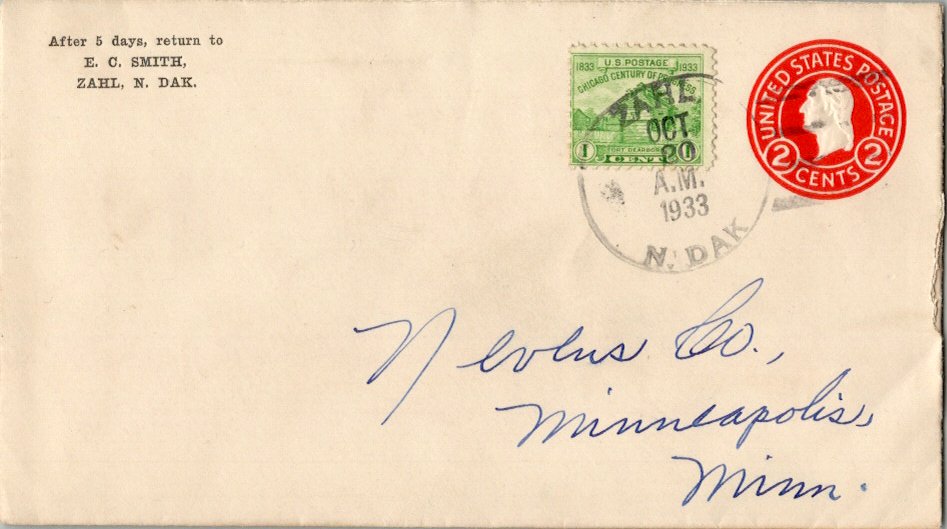 After 5 days, return to
E. C. SMITH,
ZAHL, N. DAK.
U.S. POSTAGE
1833 1933
CHICAGO CENTURY OF PROGRESS
FORT DEARBORN
1 CENT 1
ZAHL
OCT
A.M.
1933
N. DAK
UNITED STATES POSTAGE
2 CENTS 2
Nevens Co.,
Minneapolis,
Minn.